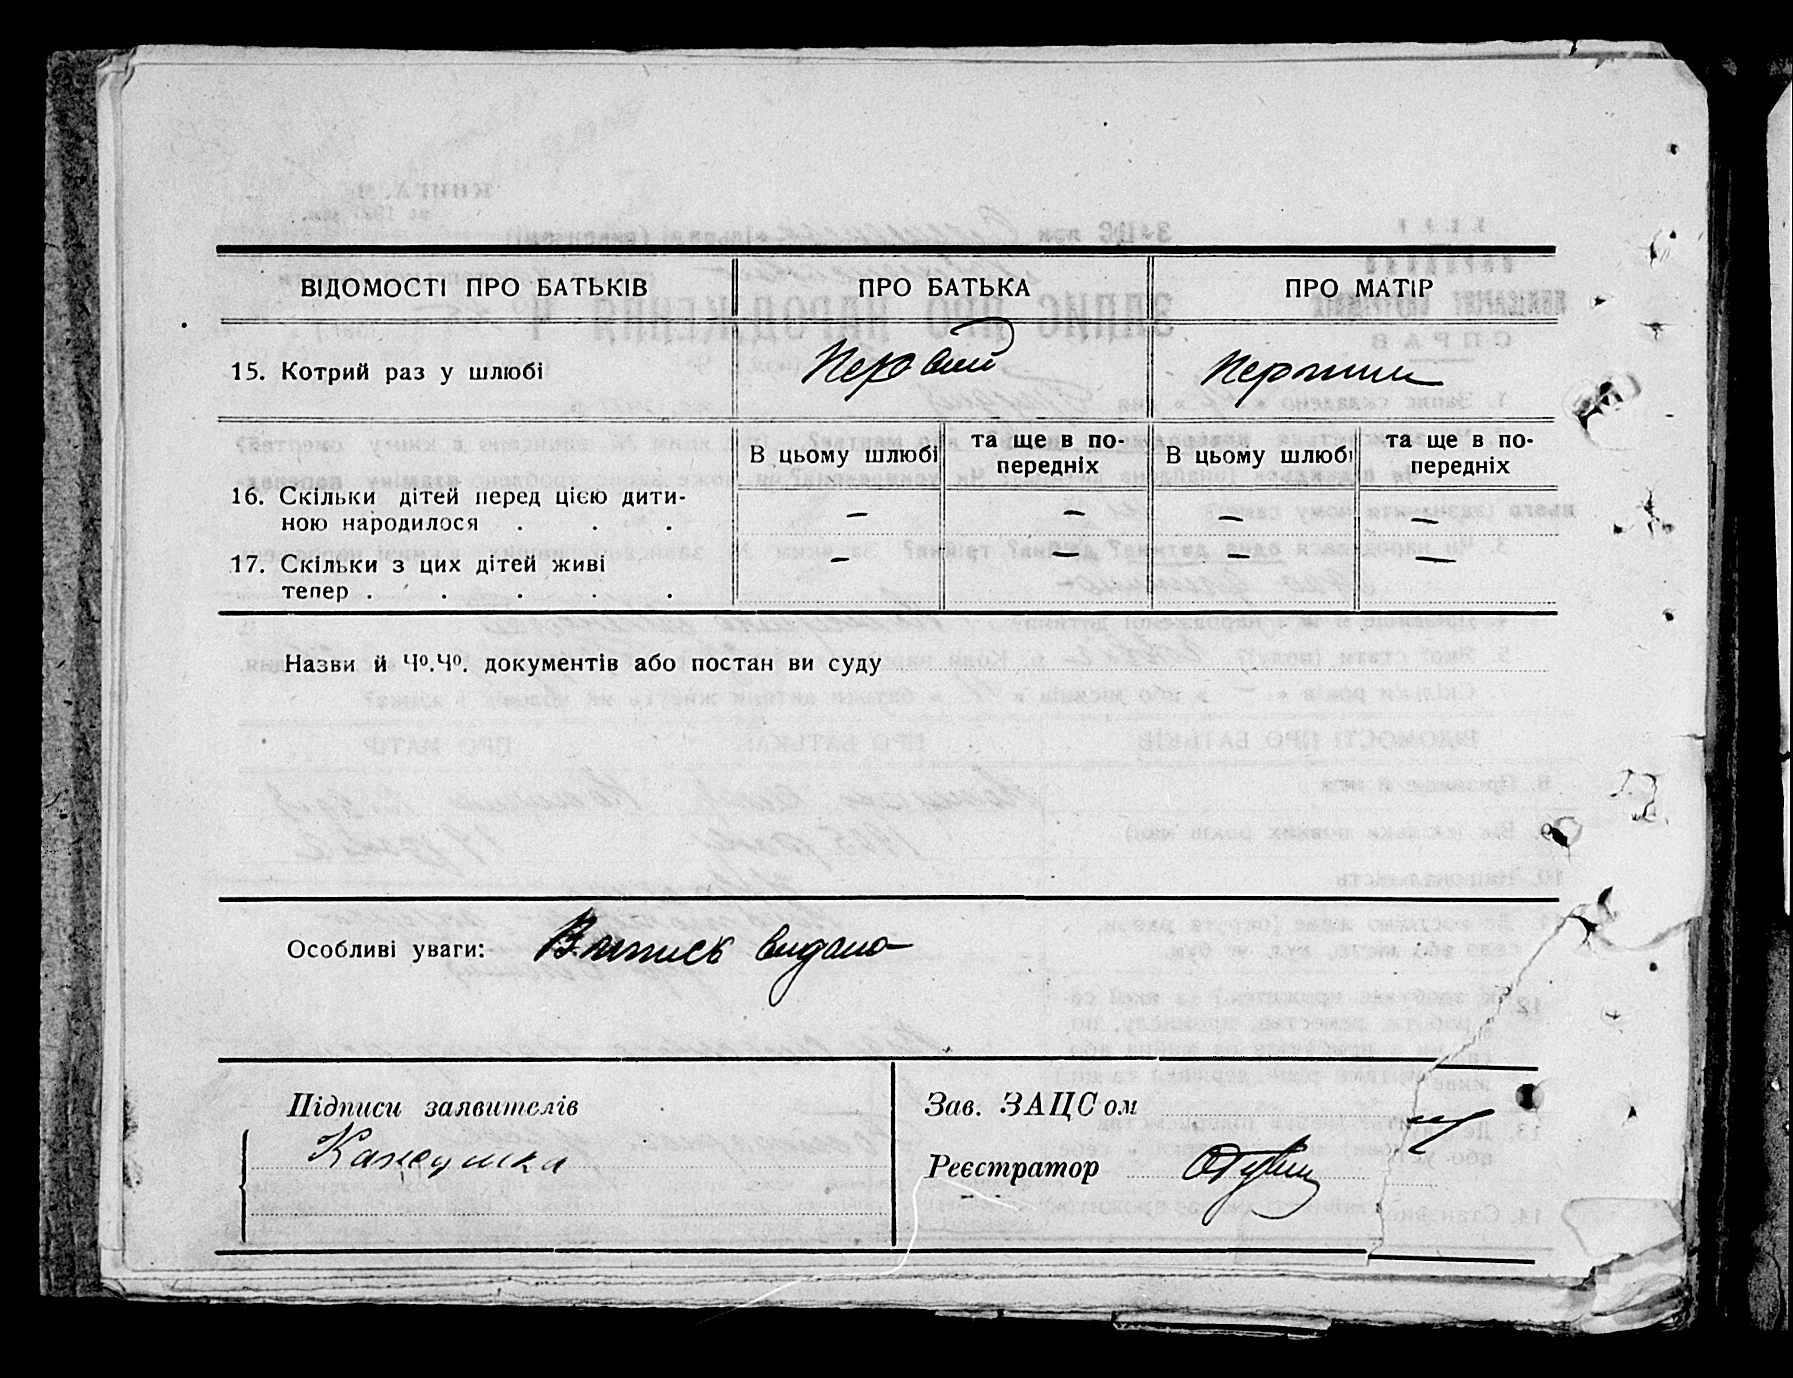 ВІДОМОСТІ ПРО БАТЬКІВ ПРО БАТЬКА ПРО МАТІР
15. Котрий раз у шлюбі Первий Перший
В цьому шлюбі та ще в по-передніх В цьому шлюбі та ще в по-передніх
16. Скільки дітей перед цією дити-
ною народилося . . . — — — —
17. Скільки з цих дітей живі — — — —
тепер . . . . .
Назви й Чº.Чº. документів або постан ви суду
Особливі уваги: Випись видано
Підписи заявителів
Зав. ЗАЦСом
Реєстратор